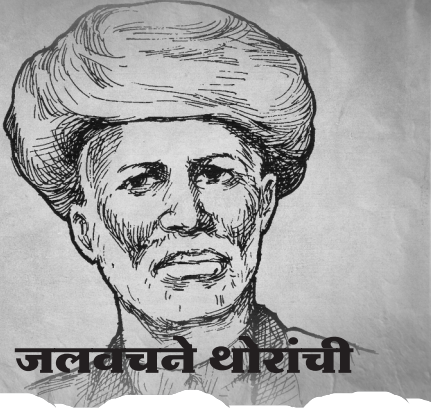 जलवचने थोरांची